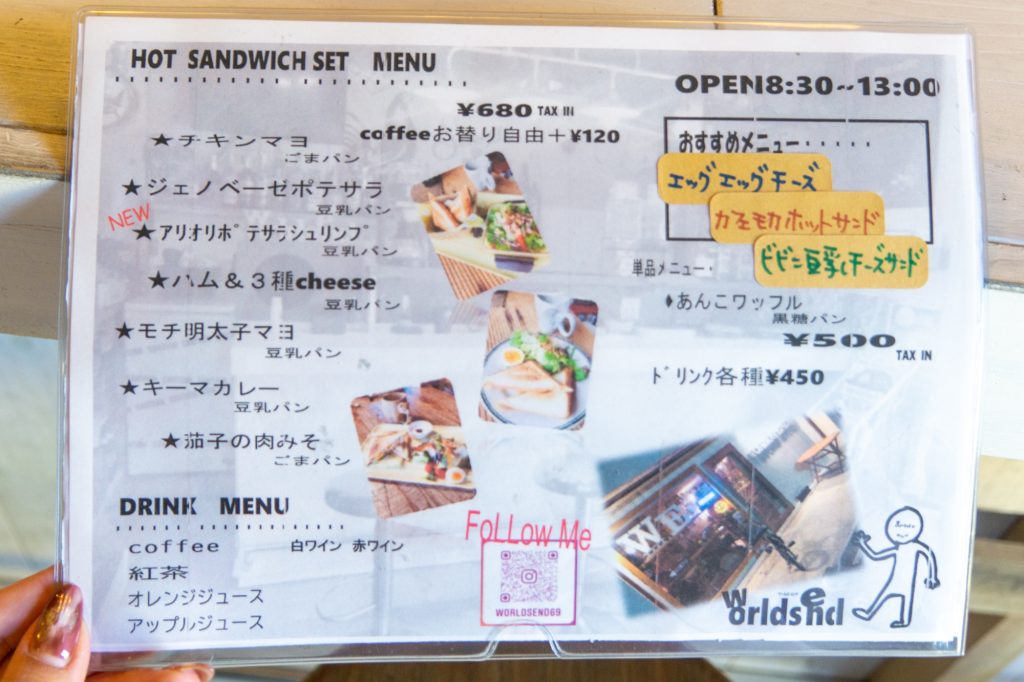 HOT SANDWICH SET MENU
¥680 TAX IN
coffeeお替り自由＋¥120
★チキンマヨ
ごまパン
★ジェノベーゼポテサラ
豆乳パン
NEW
★アリオリポテサラシュリンプ
豆乳パン
★ハム＆３種cheese
豆乳パン
★モチ明太子マヨ
豆乳パン
★キーマカレー
豆乳パン
★茄子の肉みそ
ごまパン
DRINK MENU
coffee 白ワイン 赤ワイン
紅茶
オレンジジュース
アップルジュース
OPEN8:30~13:00
おすすめメニュー・・・・・・
エッグエッグチーズ
カフェモカホットサンド
チーズサンド
単品メニュー・
♦あんこワッフル
黒糖パン
¥500
TAX IN
ドリンク各種¥450
FoLLow Me
WORLDSEND69
worldsend